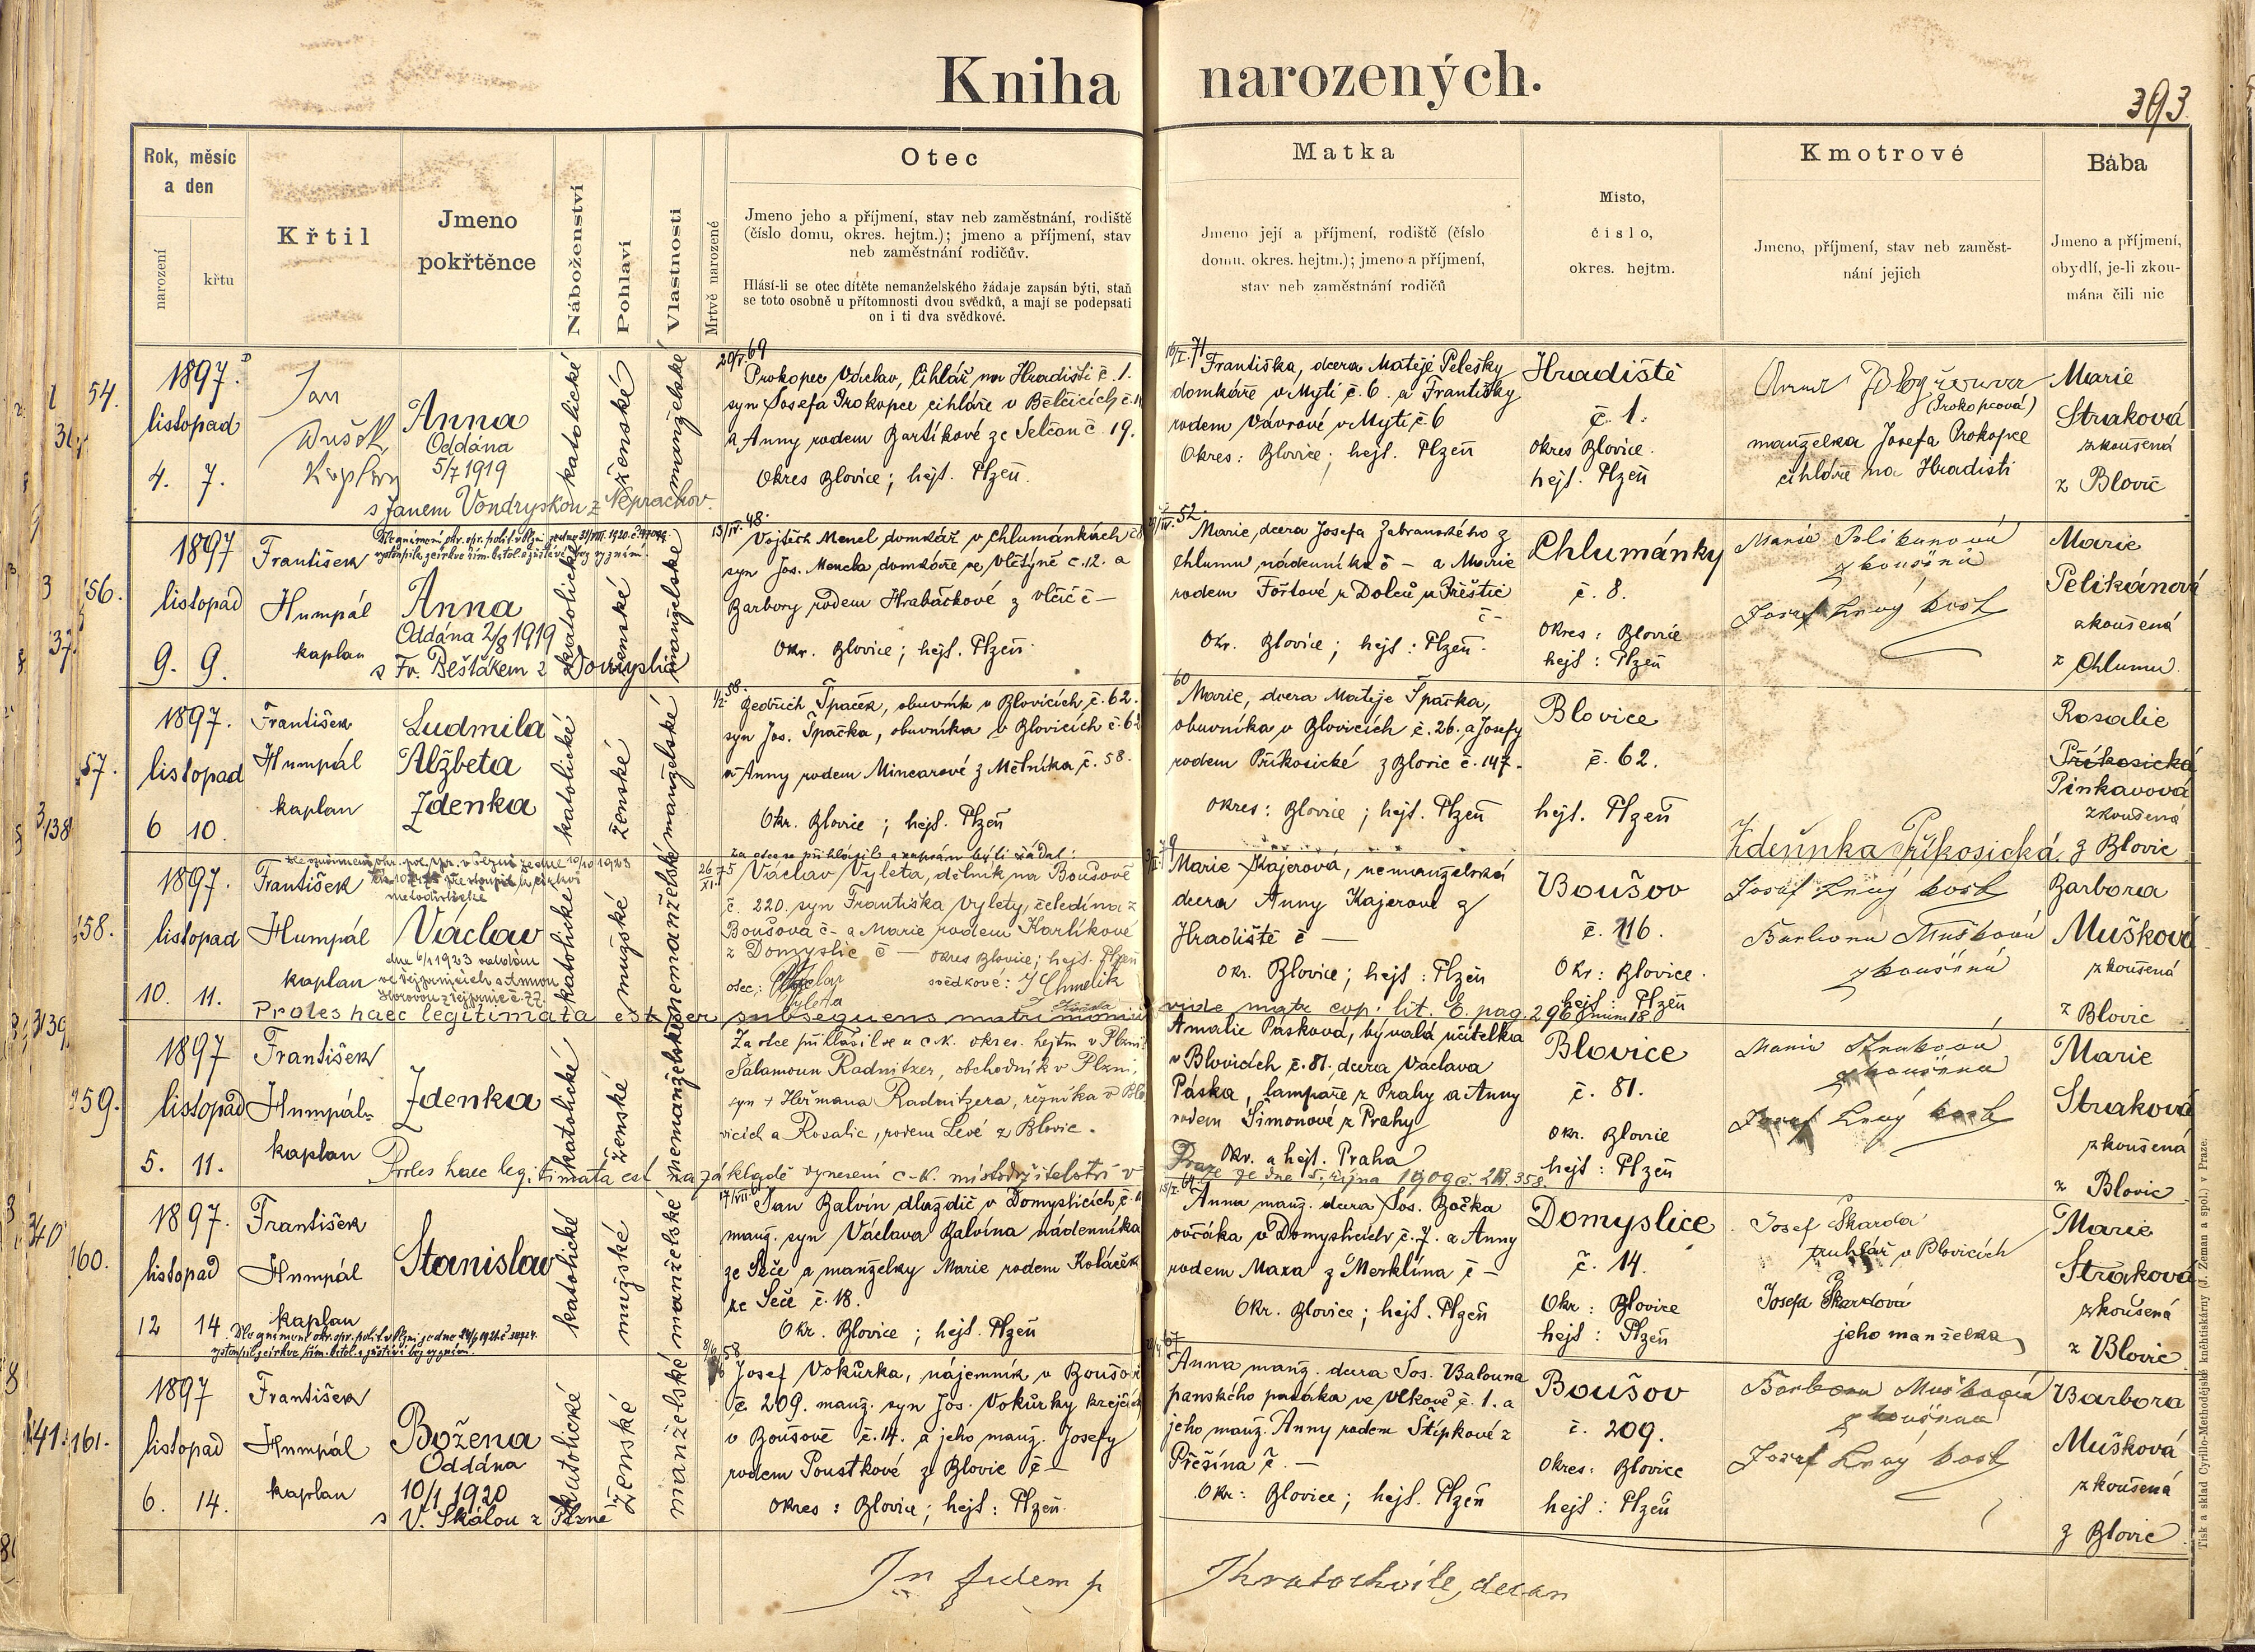 Kniha narozených.
393
Rok, měsíc
a den
narození
křtu
Křtil
Jmeno
pokřtěnce
Náboženství
Pohlaví
Vlastnosti
Mrtvě narozené
Otec
Jmeno jeho a příjmení, stav neb zaměstnání, rodiště
(číslo domu, okres. hejtm.); jmeno a příjmení, stav
neb zaměstnání rodičův.
Hlásí-li se otec dítěte nemanželského žádaje zapsán býti, staň
se toto osobně u přítomnosti dvou svědků, a mají se podepsati
on i ti dva svědkové.
Matka
Jmeno její a příjmení, rodiště (číslo
domu, okres. hejtm.); jmeno a příjmení,
stav neb zaměstnání rodičů
Místo,
číslo,
okres. hejtm.
Kmotrové
Jmeno, příjmení, stav neb zaměst-
nání jejich
Bába
Jmeno a příjmení,
obydlí, je-li zkou-
mána čili nic
54.
1897.
listopad
4. 7.
Jan
Dušek
Kaplan
Anna
Oddána
5/7 1919
s Janem Vondryskou z Neprachov.
katolické
ženské
manželské
20/V. 69
Prokopec Václav, cihlář na Hradišti č. 1.
syn Josefa Prokopce cihláře v Bělčicích č.
a Anny rodem Bartíkové ze Selčan č. 19.
Okres Blovice; hejt. Plzeň.
16/I. 71
Františka, dcera Matěje Pelešky
domkáře v Mýti č. 6. a Františky
rodem Vávrové v Mýti č. 6
Okres: Blovice; hejt. Plzeň
Hradiště
č. 1.
Okres Blovice.
hejt. Plzeň
Anna
(Prokopcová)
manželka Josefa Prokopce
cihláře na Hradišti
Marie
Straková
zkoušená
z Blovic
56.
1897
listopad
9. 9.
František
Humpál
kaplan
Anna
Oddána 2/8 1919
s Fr. Bešťákem z Domyslic
katolické
ženské
manželské
13/IV. 48.
Vojtěch Mencl domkář v Chlumánkách č. 8
syn Jos. Mencla domkáře ve Vlčtýně č. 12. a
Barbory rodem Hrabáčkové z Vlčic č —
Okr. Blovice; hejt. Plzeň.
52.
Marie, dcera Josefa Zabranského z
Chlumu nádeníka č — a Marie
rodem Fořtové z Dolců u Přeštic
č —
Okr. Blovice; hejt: Plzeň.
Chlumánky
č. 8.
Okres: Blovice
hejt: Plzeň
Marie Pelikanová
zkoušená
Josef Lný kost
Marie
Pelikánová
zkoušená
z Chlumu.
57.
1897.
listopad
6 10.
František
Humpál
kaplan
Ludmila
Alžbeta
Zdenka
katolické
ženské
manželské
58.
Bedřich Špaček, obuvník v Blovicích, č. 62.
syn Jos. Špačka, obuvníka v Blovicích č. 62
a Anny rodem Mincarové z Mělníka, č. 58.
Okr. Blovice; hejt. Plzeň
60
Marie, dcera Matěje Špačka,
obuvníka v Blovicích č. 26. a Josefy
rodem Příkosické z Blovic č. 147.
Okres: Blovice; hejt. Plzeň
Blovice
č. 62.
hejt. Plzeň
Zdeňnka Příkosická
Rosalie
Příkosická
Pinkavová
zkoušená
z Blovic
58.
1897.
listopad
10. 11.
František
Humpál
kaplan
Václav
katolické
mužské
nemanželské
Za otce se přihlásil a zapsán býti žádal:
Václav Výleta, dělník na Boušově
č. 220. syn Františka Výlety, čeledína z
Boušova č – a Marie rodem Karlíkové
z Domyslic č — okres Blovice; hejt. Plzeň
otec: Václav Výleta
svědkové: J Chmelík
Marie Kajerová, nemanželská
dcera Anny Kajerové z
Hradiště č —
Okr. Blovice; hejt: Plzeň
Boušov
č. 216.
Okr: Blovice.
hejt: Plzeň
Josef Lný kost
Barbora Mušková
zkoušená
Barbora
Mušková
zkoušená
z Blovic
Proles haec legitimata est per subsequens matrimonium vide matr. cop: lit. E. pag. 296 num 18.
159.
1897
listopad
5. 11.
František
Humpál
kaplan
Zdenka
katolické
ženské
nemanželské
Za otce přihlásil se u c.k. okres. hejtm v Plzni
Šalamoun Radnitzer, obchodník v Plzni,
syn + Heřmana Radnitzera, řezníka v Blo
vicích a Rosalie, rodem Levé z Blovic.
Amalie Pásková, bývalá učitelka
v Blovicích č. 81. dcera Václava
Páska, lampáře z Prahy a Anny
rodem Šimonové z Prahy
Okr. a hejt. Praha
Blovice
č. 81.
Okr. Blovice
hejt: Plzeň
Marie Straková
zkoušená
Josef Lný kost
Marie
Straková
zkoušená
z Blovic
Proles haec legitimata est na základě vynesení c.k. místodržitelství v
Praze ze dne 5. října 1909
160.
1897.
listopad
12 14
František
Humpál
kaplan
Stanislav
katolické
mužské
manželské
Jan Balvín dlaždič v Domyslicích, č.
manž. syn Václava Balvína nádenníka
ze Seče a manželky Marie rodem Koláček
ze Seče č. 18.
Okr. Blovice; hejt. Plzeň
Anna manž. dcera Jos. Bočka
ovčáka v Domyslicích č. 7. a Anny
rodem Maxa z Merklína č —
Okr. Blovice; hejt. Plzeň
Domyslice
č. 14.
Okr: Blovice
hejt: Plzeň
Josef Škarda
truhlář v Blovicích
Josefa Škardová
jeho manželka
Marie
Straková
zkoušená
z Blovic
161.
1897
listopad
6. 14.
František
Humpál
kaplan
Božena
Oddána
10/1 1920
s V. Skálou z Plzně
katolické
ženské
manželské
58
Josef Vokůrka, nájemník v Boušov
č 209. manž. syn Jos. Vokůrky krejčí
v Boušově č. 14. a jeho manž. Josefy
rodem Poustkové z Blovic č —
Okres: Blovice; hejt: Plzeň.
67
Anna manž. dcera Jos. Balouna
panského pasáka ve Vlkově č. 1. a
jeho manž. Anny rodem Štípkové z
Přešína č. —
Okr: Blovice; hejt. Plzeň
Boušov
č. 209.
Okres: Blovice
hejt: Plzeň
Barbora Mušková
zkoušená
Josef Lný kost
Barbora
Mušková
zkoušená
z Blovic
In fidem p Jkratochvíle, decan
Tisk a sklad Cyrillo-Methodějské kněhtiskárny (J. Zeman a spol.) v Praze.